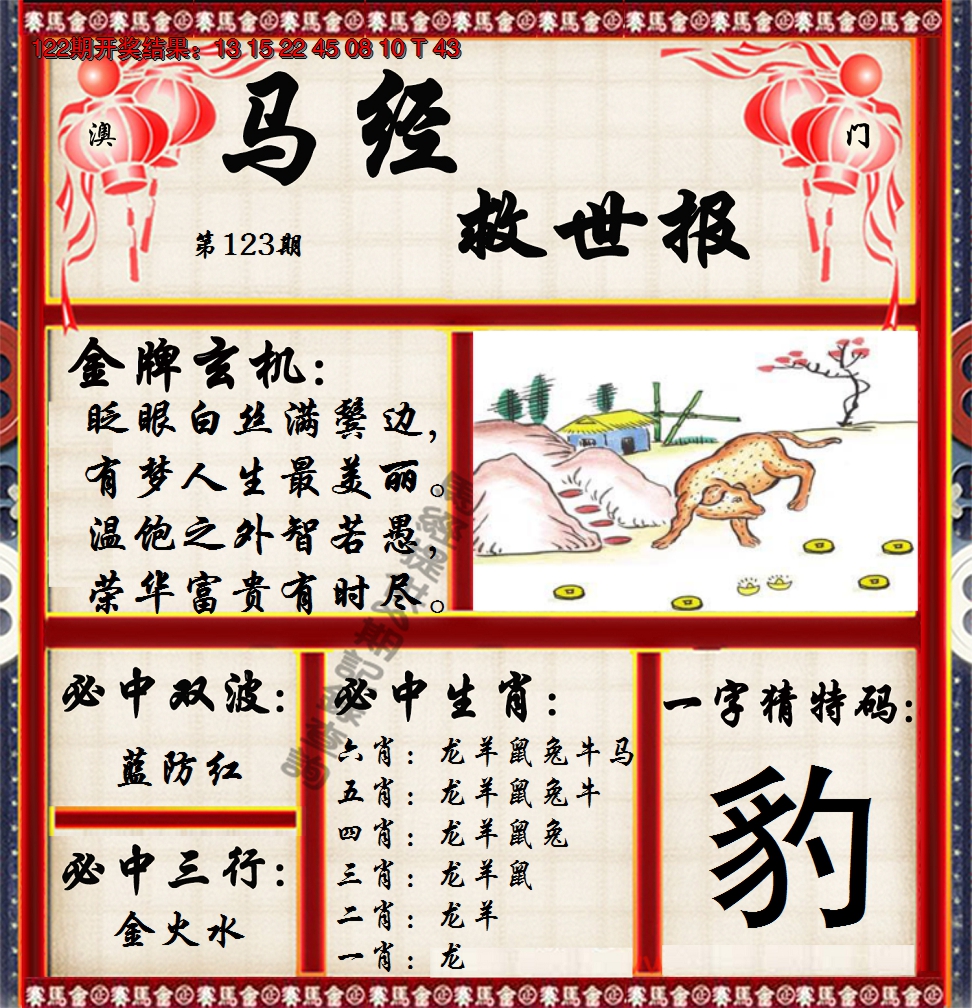 122期开奖结果：13 15 22 45 08 10 T 43
澳
门
马经
救世报
第123期
金牌玄机：
眨眼白丝满鬓边，
有梦人生最美丽。
温饱之外智若愚，
荣华富贵有时尽。
必中双波：
蓝防红
必中三行：
金火水
必中生肖：
六肖：龙羊鼠兔牛马
五肖：龙羊鼠兔牛
四肖：龙羊鼠兔
三肖：龙羊鼠
二肖：龙羊
一肖：龙
一字猜特码：
豹